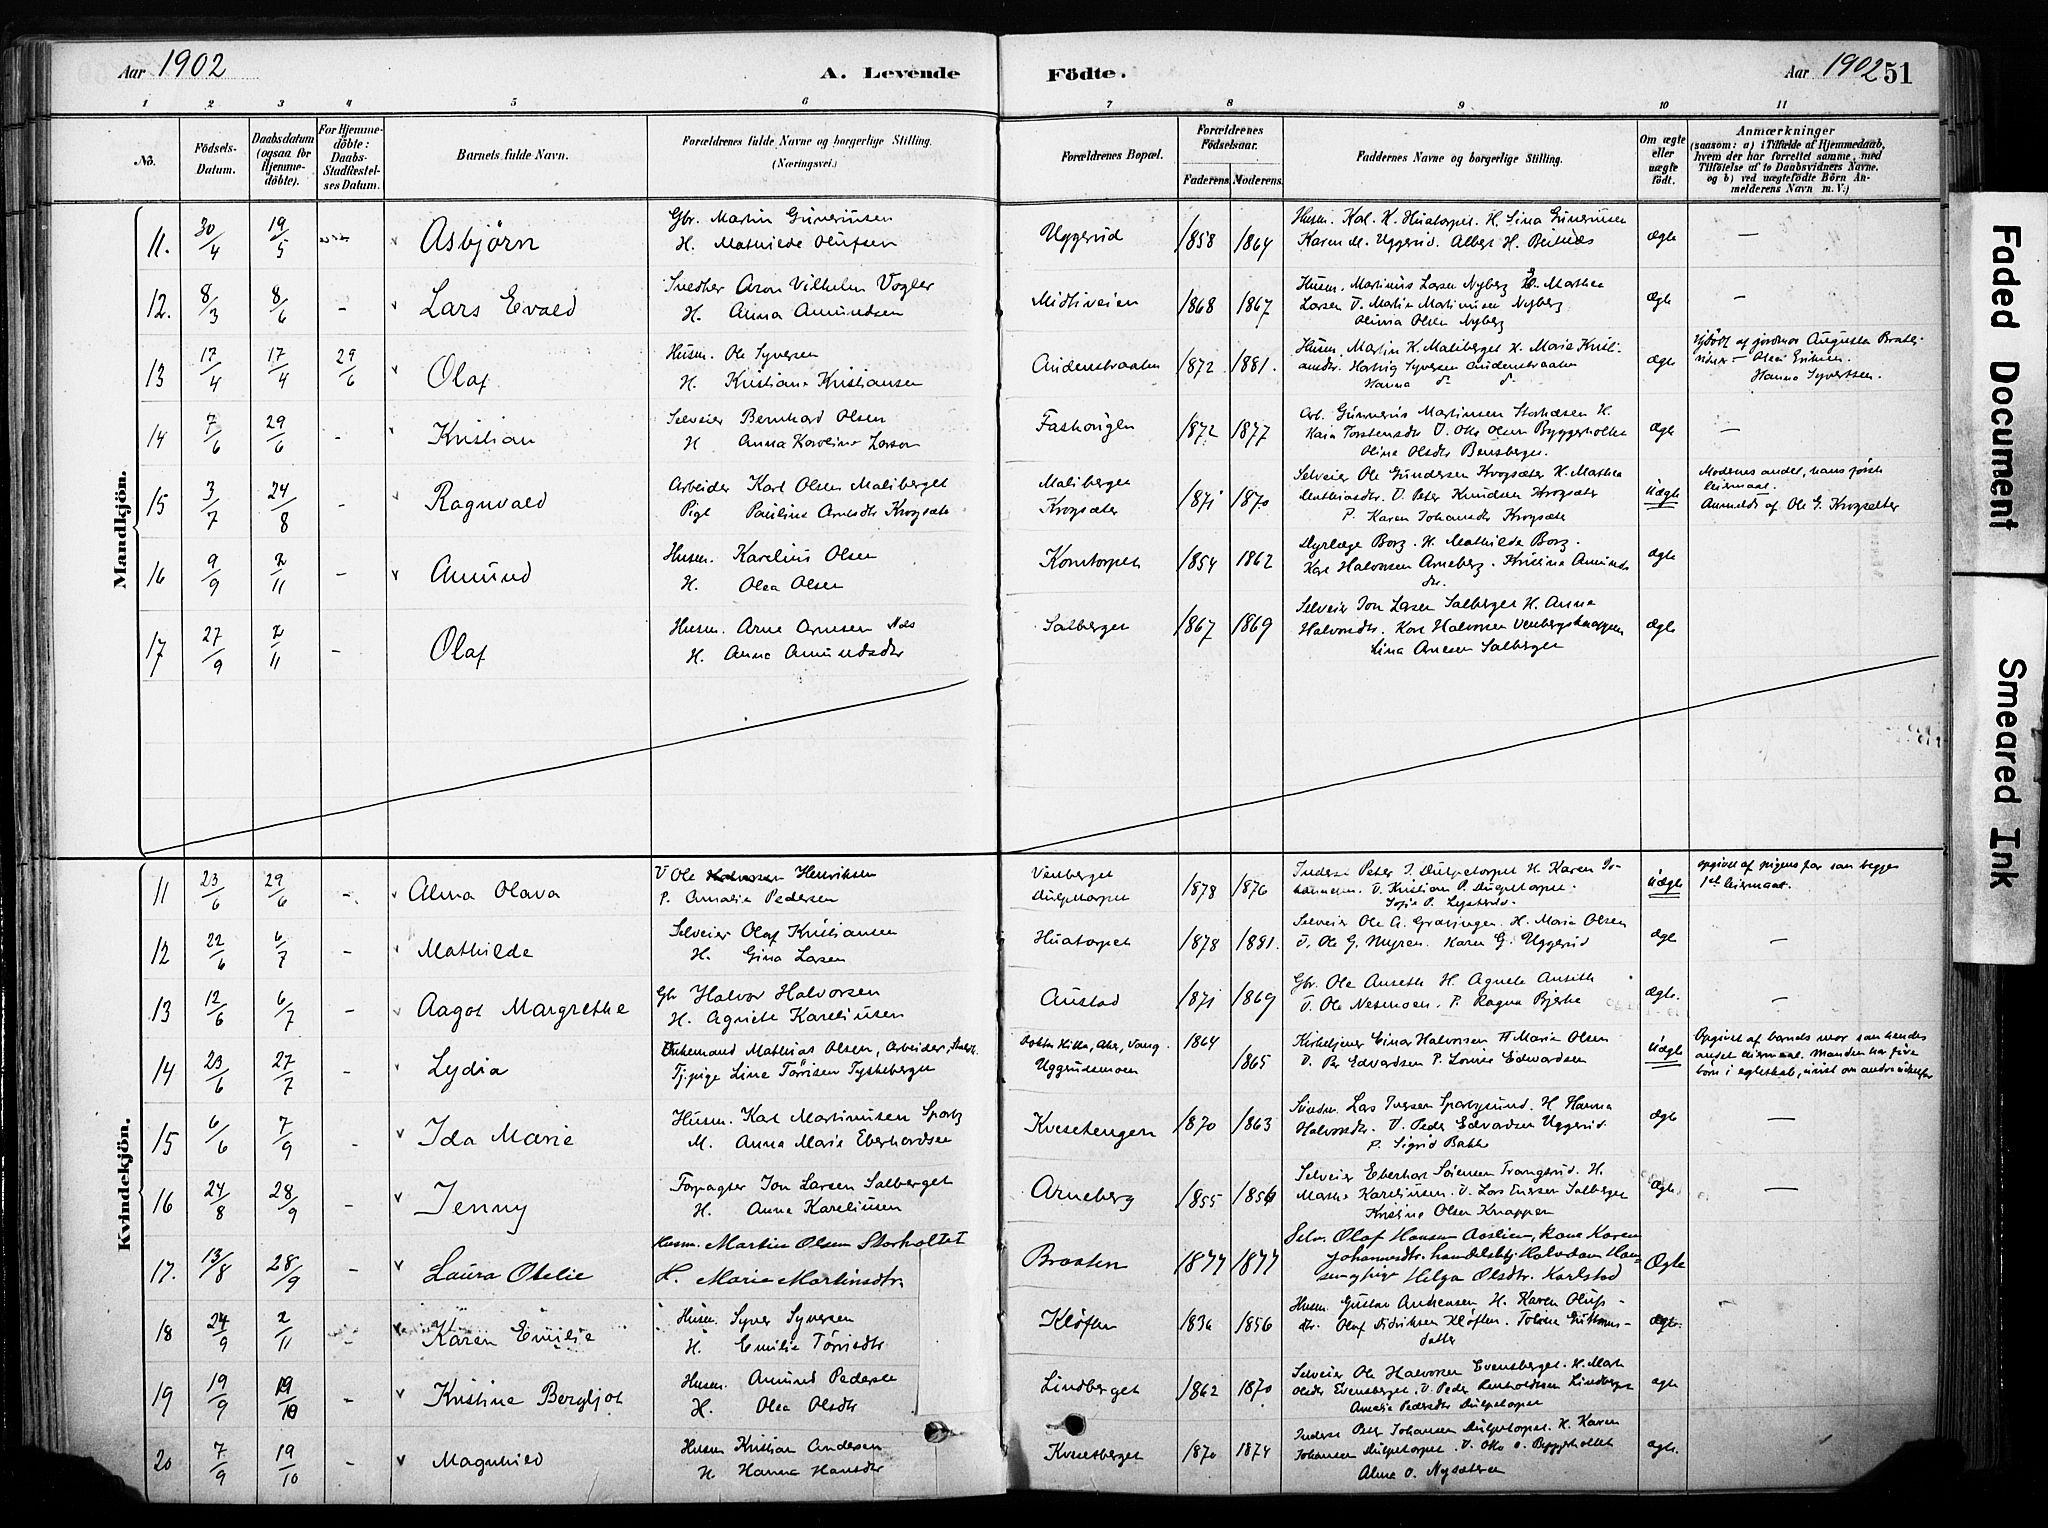 Aar 1902
A. Levende
Födte.
Aar 1902
51
1 2 3 4 5 6 7 8 9 10 11
No.
Födsels-
Datum.
Daabsdatum
(ogsaa for
Hjemme-
döbte).
For Hjemme-
döbte:
Daabs-
Stadfæstel-
ses Datum.
Barnets fulde Navn.
Forældrenes fulde Navne og borgerlige Stilling.
(Næringsvei.)
Forældrenes Bopæl.
Forældrenes
Födselsaar.
Faderens. Moderens.
Faddernes Navne og borgerlige Stilling.
Om ægte
eller
uægte
født.
Anmærkninger
(saasom: a) i Tilfælde af Hjemmedaab,
hvem der har forrettet samme, med
Tilföielse af to Daabsvidners Navne,
og b) ved uægtefödte Börn An-
melderens Navn m. V.)
Mandkjön.
11. 30/4 19/5 Asbjörn
Gbr. Martin Guneriusen
H. Mathilde Olufsen
Uggerud 1858 1864
Husm. Kal. K. Huatorpet. H. Lina Gunerusen
Karen M. Uggerud. Albert H.
ægte —
12. 8/3 8/6 - Lars Evald
Snedker Aron Vilhelm Vogler
H. Anna Amundsen
Midtiveien 1868 1867
Husm. Martinus Larsen Nyberg H. Marthea
Larsen U. Martin Martinusen Nyberg
Olivia Olsen Nyberg
ægte —
13 17/4 17/4 29/6 Olaf
Husm. Ole Syversen
H. Kristiane Kristiansen
Audensbraaten 1872 1881.
Husm. Martin K. Maliberget H. Marie Kristi-
ansdr. Hartvig Syversen Audensbraaten
Hanna do do
ægte
Hjdöbt af jordmor Augusta Braten
vidner - Olea Eriksen.
Hanna Syvertsen.
14 7/6 29/6 - Kristian
Selveier Bernhard Olsen
H Anna Karoline Larsen
1872 1877
Arb. Gunnerius Martinsen H.
Kari Torstensdtr U. Ole Olsen Byggerholtet
Oline Olsdtr Bensberget.
ægte —
15 3/7 24/8 - Ragnvald
Arbeider Karl Olsen Maliberget
Pige Pauline Arnesdtr Krogsæter
Maliberget
Krogsæter
1871 1870
Selveier Ole Gundersen Krogsæter H. Mathea
Mathiasdtr. U. Peter Knudsen Krogsæter
P. Karen Johansdtr Krogsæter
uægte
Moderens andet, hans første
leiermaal.
Anmeldt af Ole G. Krogsæter
16 9/9 2/11 - Amund
Husm. Karelius Olsen
H. Olea Olsen
Korntorpet 1854 1862
Dyrlæge Borg. H. Mathilde Borg.
Karl Halvorsen Arneberg. Kristine Amunds-
dr.
ægte
17 27/9 2/11 - Olaf
Husm. Arne Arnesen
H. Anna Amundsdtr
Salberget 1867 1869
Selveier Jon Larsen Salberget H. Anna
Halvorsdtr. Karl Halvorsen Venbergsknappen
Lina Arnesen Salberget
ægte
Kvindekjön.
11 23/6 29/6 -. Alma Olava
U Ole Halvorsen Henriksen
P. Amalie Pedersen
Venberget
Dulpetorpet
1878 1876
Inderst Peter J. Dulpetorpet H. Karen Jo-
hannesen. U. Kristian P. Dulpetorpet.
Sofie P.
uægte
opgivet af pigens far som begges
1st leiermaal.
12 22/6 6/7 - Mathilde
Selveier Olaf Kristiansen
H. Gina Larsen
Huatorpet 1878 1881.
Selveier Ole A. Grasungen. H. Maria Olsen
U. Ole G. Myren. Karen G. Uggerud
ægte —
13 12/6 6/7 - Aagot Margrethe
Gb Halvor Halvorsen
H. Agnete Kareliusen
Austad 1871 1869
Gbr. Ole Anseth H. Agnete Anseth
U. Ole Nesmoen. P. Ragna Bjerke
ægte. —
14 23/6 27/7 - Lydia
Enkemand Mathias Olsen, Arbeider,
Tj.pige Lina Törrisen Tyskeberget
Uggerudsmoen
1864
1865
Kirketjener Einar Halvorsen H Maria Olsen
U. Per Edvardsen P. Lovise Edvardsen
uægte
Opgivet af barnets mor som hendes
andet leiermaal. Manden har flere
børn i egteskab, uvist om andre udenfor
15 6/6 7/9 - Ida Marie
Husm. Karl Martinusen Sparby
M. Anna Marie Eberhardsen
Kvesetengen 1870 1863
Lars Iversen Sparbysund. H Hanna
Halvorsdtr. U. Peder Edvardsen Uggerud
P. Sigrid Bakke
ægte —
16 24/8 28/9 - Jenny
Forpagter Jon Larsen Salberget
H. Anna Kareliusen
Arneberg 1855 1856
Selveier Eberhart Sörensen Trangerud. H.
Marthe Kareliusen. U. Lars Enersen Salberget
Kristine Olsen Knappen
ægte. —
17. 13/8 28/9 - Laura Otelie
Husm. Martin Olsen Storholtet
H. Marie Martinsdtr.
Braaten 1877 1877
Selv. Olaf Hansen Aaslien, kone Karen
Johannesdtr. handelsbtj. Halvdan Han-
sen, pige Helga Olsdtr. Karlstad
Ægte
18 24/9 2/11 Karen Emilie
Husm. Syver Syversen
H. Emilie Törrisdtr
Kløften 1836 1856
Husm. Gustav Andreasen H. Karen Oluf-
dtr. Olaf Didriksen Kløften. Tobine Guttorms-
datter
ægte.
19 19/9 19/10 - Kristine Bergljot
Husm. Amund Pedersen
H. Olea Olsdtr
Lindberget 1862 1870
Selveier Ole Halvorsen Evensberget. H. Marte
Olsdtr Evensberget, U. Peder Lindberget
Amalie Pedersdtr Dulpetorpet
ægte
20 7/9 19/10 - Magnhild
Husm Kristian Andersen
H Hanna Hansdtr
Kvesetberget 1870 1874
Inderst Peter Johansen Dulpetorpet. H. Karen
Johansen Dulpetorpet. U. Ole O. Byggerholtet
Alma O. Nysæteren
ægte.
Faded Document
Smeared Ink